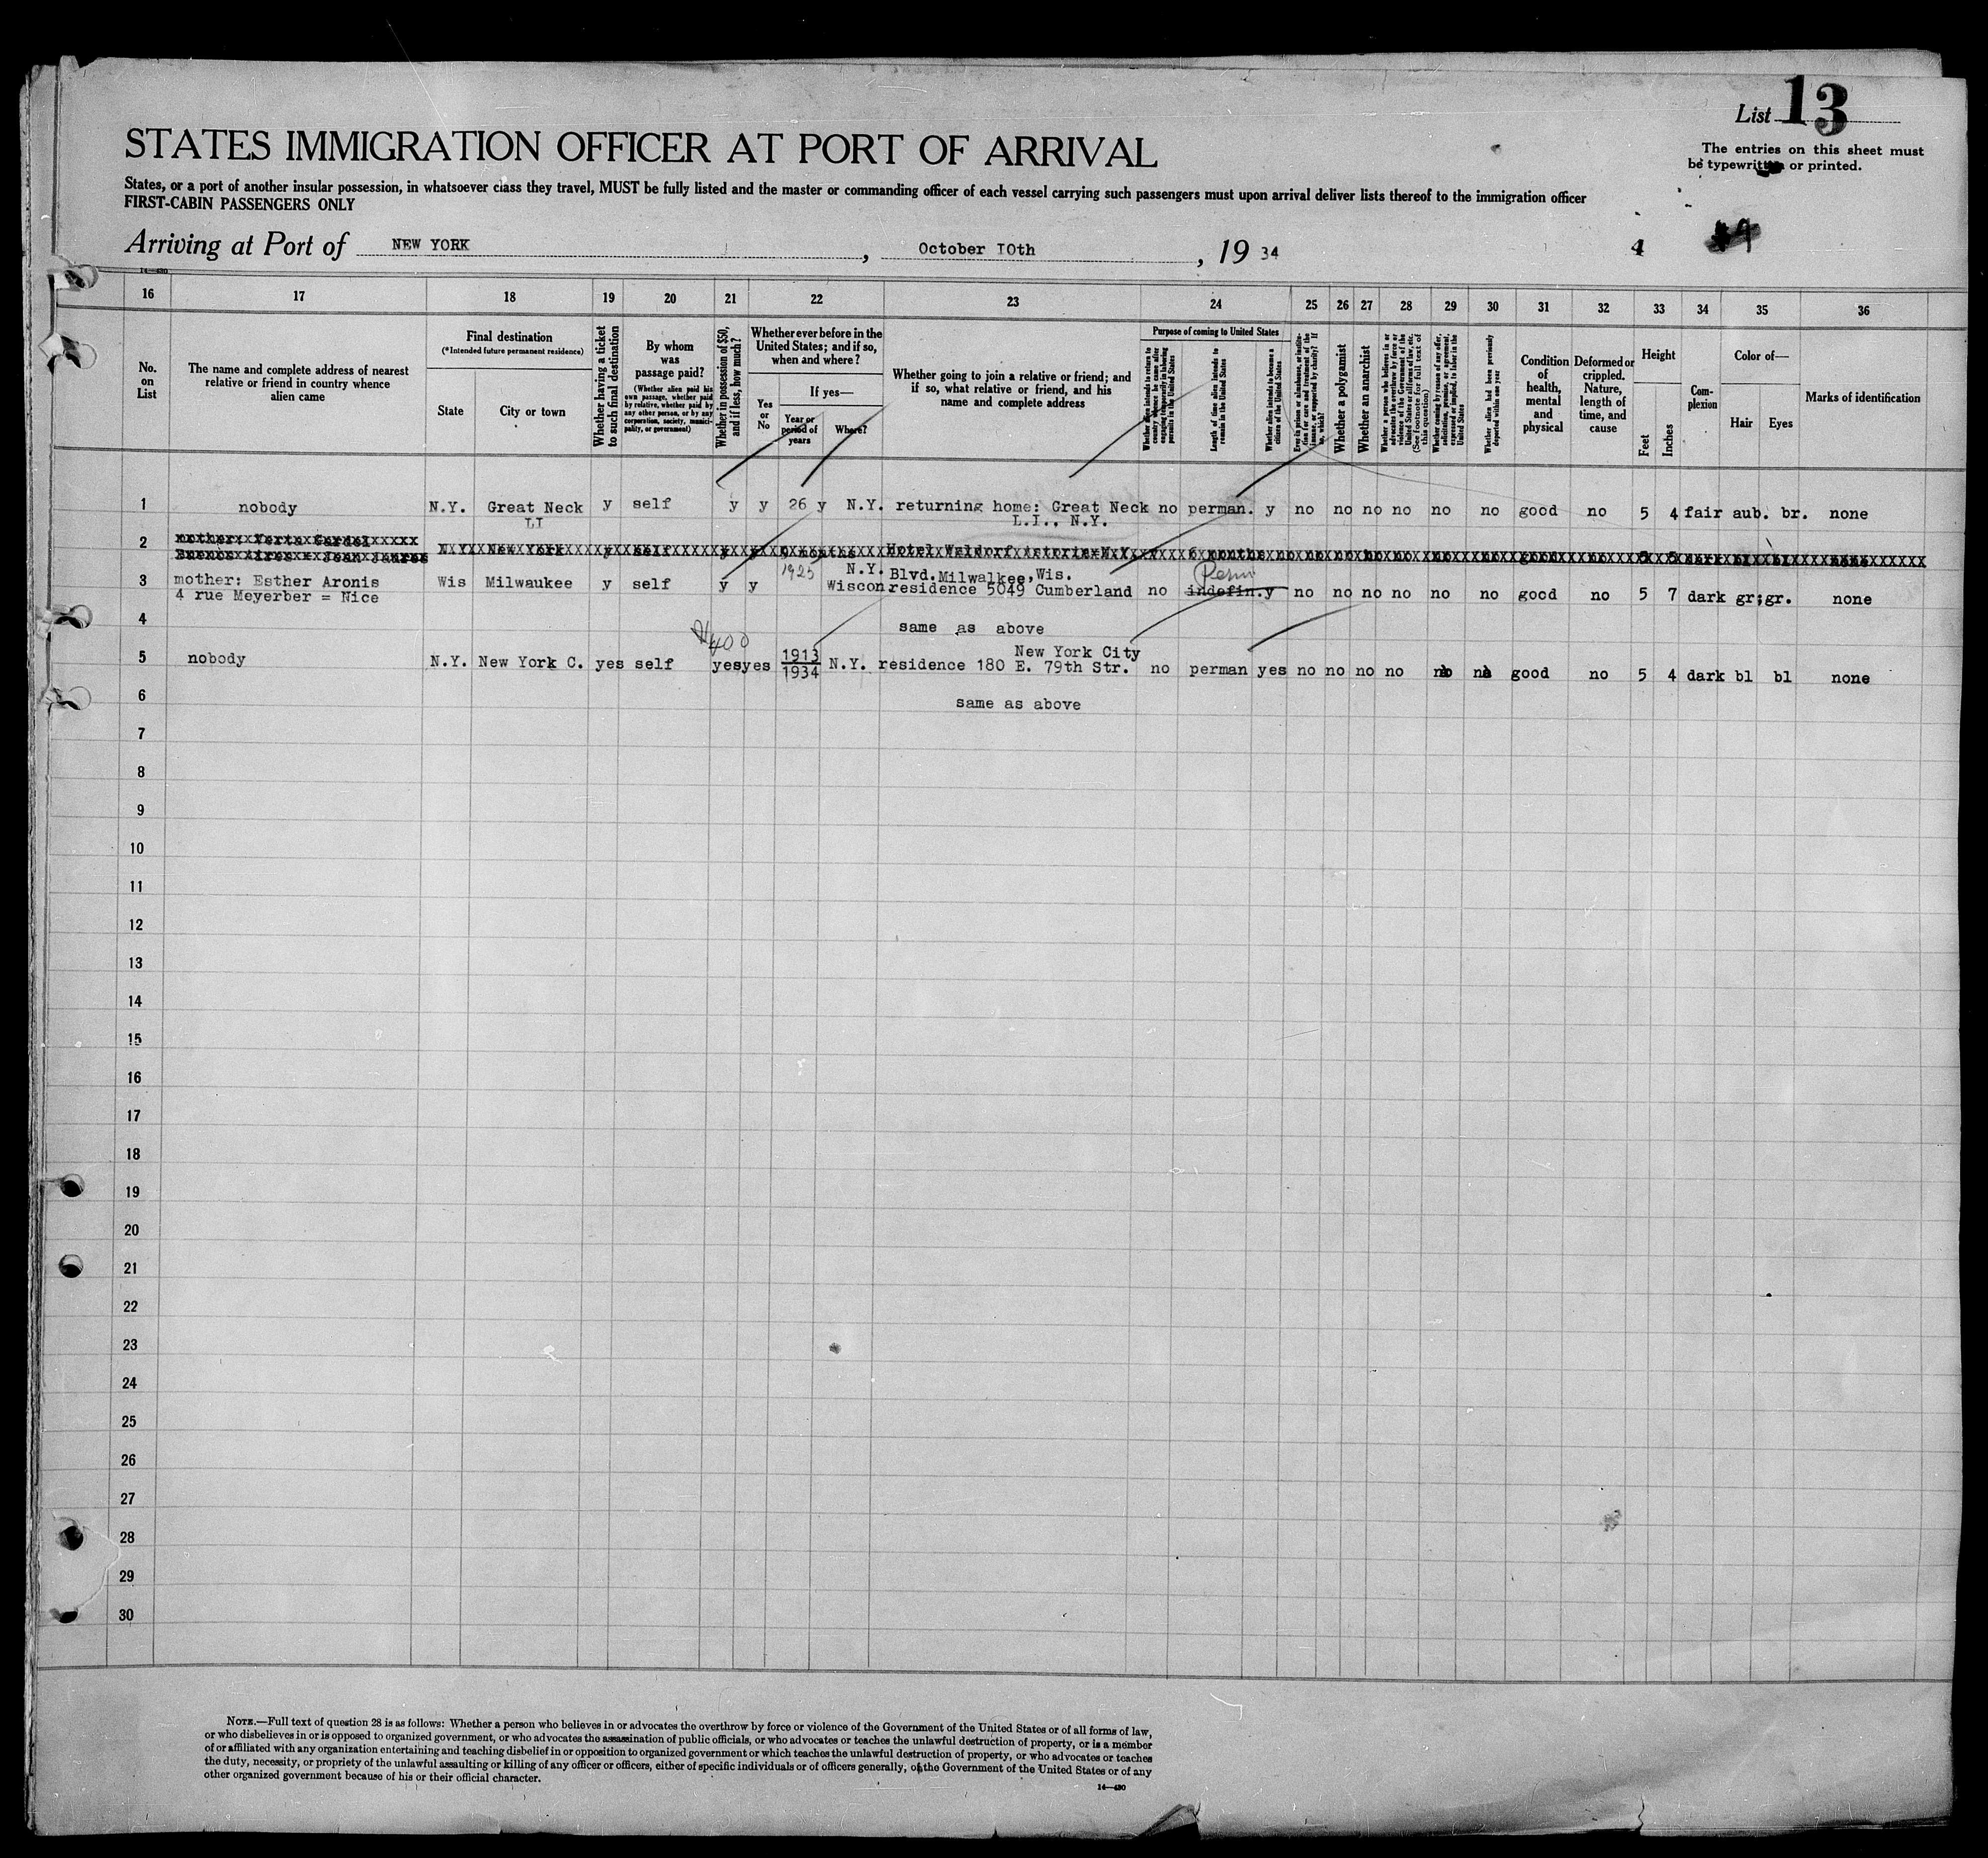 List 13
The entries on this sheet must
be typewritten or printed.
STATES IMMIGRATION OFFICER AT PORT OF ARRIVAL
States, or a port of another insular possession, in whatsoever class they travel, MUST be fully listed and the master or commanding officer of each vessel carrying such passengers must upon arrival deliver lists thereof to the immigration officer
FIRST-CABIN PASSENGERS ONLY
Arriving at Port of NEW YORK, October IOth, 19 34
4
14—430
16 17 18 19 20 21 22 23 24 25 26 27 28 29 30 31 32 33 34 35 36
No.
on
List
The name and complete address of nearest
relative or friend in country whence
alien came
Final destination
(*Intended future permanent residence)
State
City or town
Whether having a ticket
to such final destination
By whom
was
passage paid?
(Whether alien paid his
own passage, whether paid
by relative, whether paid by
any other person, or by any
corporation, society, munici-
pality, or government)
Whether in possession of $50,
and if less, how much?
Whether ever before in the
United States; and if so,
when and where?
Yes
or
No
If yes—
Year or
period of
years
Where?
Whether going to join a relative or friend; and
if so, what relative or friend, and his
name and complete address
Purpose of coming to United States
Whether alien intends to return to
country whence he came after
engaging temporarily in laboring
pursuits in the United States
Length of time alien intends to
remain in the United States
Whether alien intends to become a
citizen of the United States
Ever in prison or almshouse, or institu-
tion for care and treatment of the
insane, or supported by charity? If
so, which?
Whether a polygamist
Whether an anarchist
Whether a person who believes in or
advocates the overthrow by force or
violence of the Government of the
United States or all forms of law, etc.
(See footnote for full text of
this question)
Whether coming by reason of any offer,
solicitation, promise, or agreement,
expressed or implied, to labor in the
United States
Whether alien had been previously
deported within one year
Condition
of
health,
mental
and
physical
Deformed or
crippled.
Nature,
length of
time, and
cause
Height
Feet
Inches
Com-
plexion
Color of—
Hair
Eyes
Marks of identification
1 nobody N.Y. Great Neck y self y y 26 y N.Y. returning home: Great Neck no perman. y no no no no no no good no 5 4 fair aub. br. none
LI L.I., N.Y.
2 mother: Berta Gardel
Buenos Aires = Jean Jaures N.Y. New York y self y y 9 months Hotel Waldorf Astoria N.Y. 6 months no no no no no no no good no 5 dark bl bl none
1925 N.Y. Blvd. Milwalkee, Wis. Perm
3 mother: Esther Aronis Wis Milwaukee y self y y Wiscon residence 5049 Cumberland no indefin. y no no no no no no good no 5 7 dark gr; gr. none
4 rue Meyerber = Nice
4 same as above
$400
New York City
5 nobody N.Y. New York C. yes self yes yes 1913
1934 N.Y. residence 180 E. 79th Str. no perman yes no no no no no no good no 5 4 dark bl bl none
6 same as above
7
8
9
10
11
12
13
14
15
16
17
18
19
20
21
22
23
24
25
26
27
28
29
30
NOTE.—Full text of question 28 is as follows: Whether a person who believes in or advocates the overthrow by force or violence of the Government of the United States or of all forms of law,
or who disbelieves in or is opposed to organized government, or who advocates the assassination of public officials, or who advocates or teaches the unlawful destruction of property, or is a member
of or affiliated with any organization entertaining and teaching disbelief in or opposition to organized government or which teaches the unlawful destruction of property, or who advocates or teaches
the duty, necessity, or propriety of the unlawful assaulting or killing of any officer or officers, either of specific individuals or of officers generally, of the Government of the United States or of any
other organized government because of his or their official character.
14—430